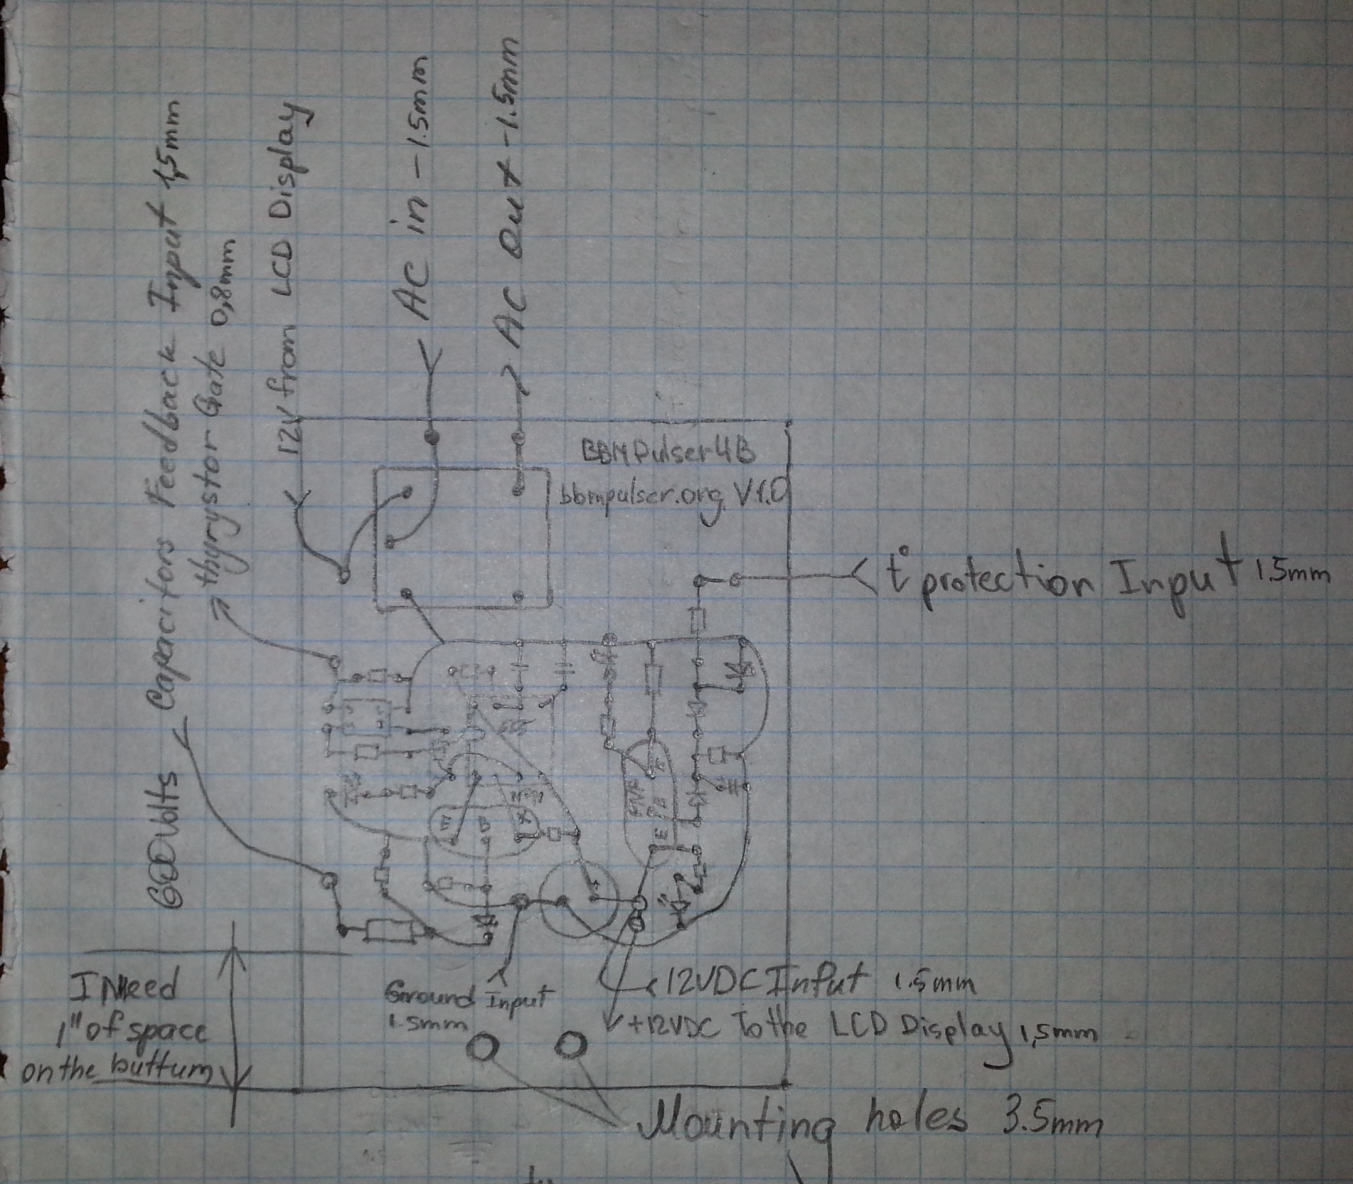 600Volts Capacitors Feedback Input 1,5mm
thyrystor Gate 0,8mm
12V from LCD Display
AC in - 1.5mm
AC Out - 1.5mm
BBMPulser4B
bbmpulser.org V1.0
t° protection Input 1.5mm
PNP
E
I Need
1" of space
on the buttum
Ground Input
1.5mm
12VDC Input 1.5mm
+12VDC To the LCD Display 1,5mm
Mounting holes 3.5mm